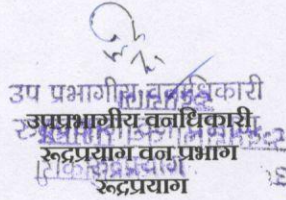 उप प्रभागीय वनाधिकारी
उपप्रभागीय वनाधिकारी
रूद्रप्रयाग वन प्रभाग
रूद्रप्रयाग